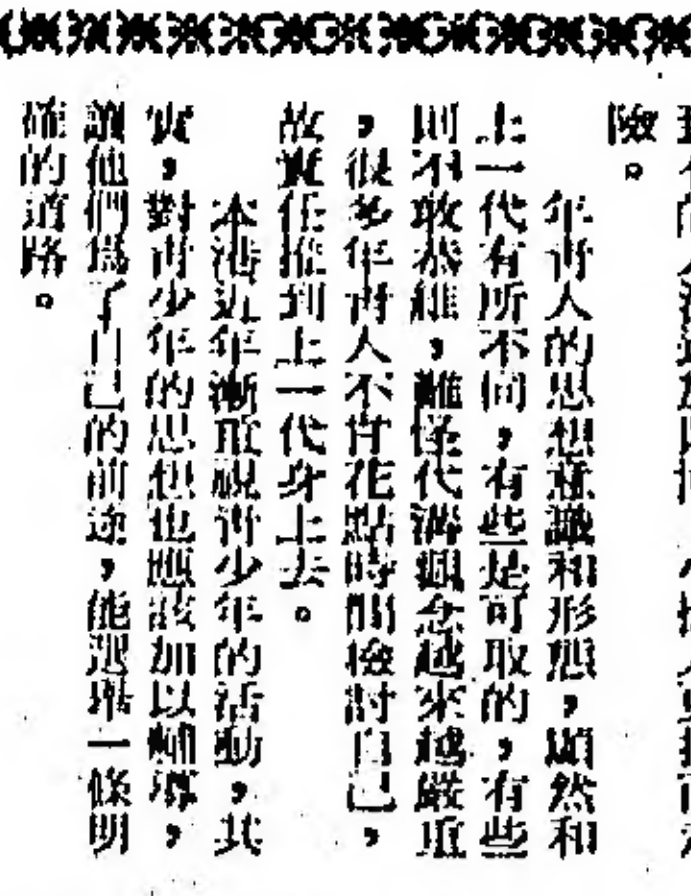 險。
年青人的思想意識和形態，顯然和
上一代有所不同，有些是可取的，有些
則不敢恭維，難怪代溝觀念越來越嚴重
，很多年青人不肯花點時間檢討自己，
故責任推到上一代身上去。
本港近年漸重視青少年的活動，其
實，對青少年的思想也應該加以輔導，
讓他們爲了自己的前途，能選擇一條明
確的道路。